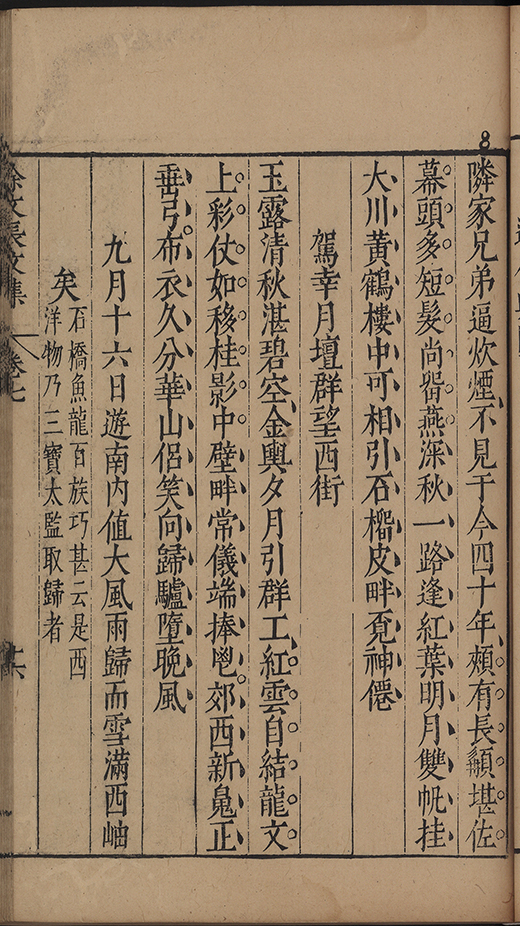 8
隣家兄弟逼炊煙不見于今四十年頰有長顬堪佐
幕頭多短髮尚畱燕深秋一路逢紅葉明月雙帆挂
大川黃鶴樓中可相引石橊皮畔覓神僊
駕幸月壇群望西街
玉露清秋湛碧空金輿夕月引群工紅雲自結龍文
上彩仗如移桂影中壁畔常儀端捧鬯郊西新鳬正
垂弓布衣久分華山侶笑向歸驢墮晚風
九月十六日遊南內值大風雨歸而雪滿西岫
矣石橋魚龍百族巧甚云是西
洋物乃三寶太監取歸者
徐文長文集 卷七 十六